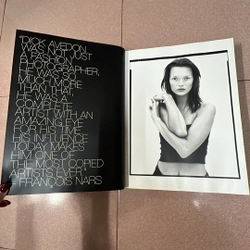 "DICK AVEDON
WAS NOT JUST
A FASHION
PHOTOGRAPHER,
HE WAS SO
MUCH MORE
THAN THAT.
HE WAS A
COMPLETE
ARTIST WITH AN
AMAZING EYE
FOR HIS TIME.
HIS INFLUENCE
TODAY MAKES
HIM ONE OF
THE MOST COPIED
ARTISTS EVER."
– FRANÇOIS NARS